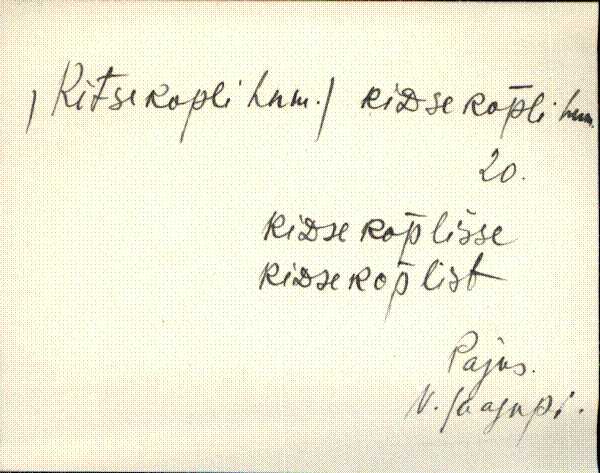 /Kitsekopli hum./ kiDse kop̄li hum.
20.
kiDse kop̄lisse
kiDsekop̄list
Pajus.
V. Jaagupi.